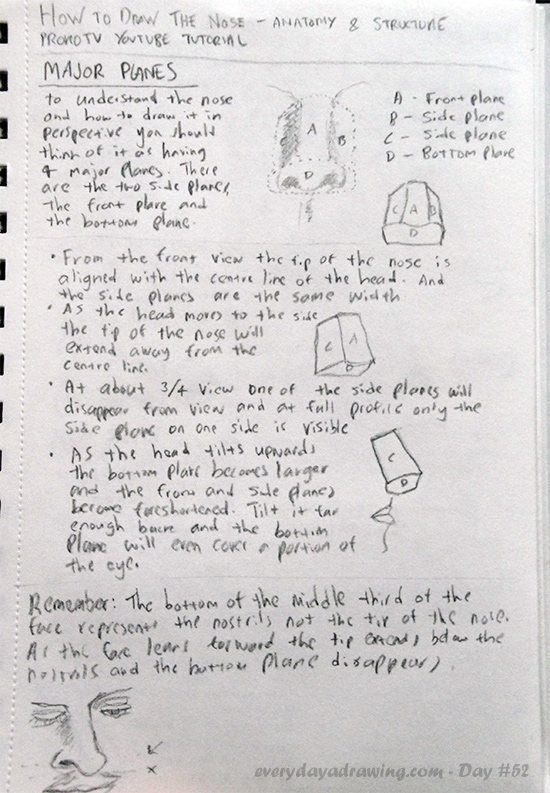 How to Draw The Nose - Anatomy & Structure
PROKOTV YOUTUBE TUTORIAL
MAJOR PLANES
to understand the nose
and how to draw it in
perspective you should
think of it as having
4 major planes. There
are the two side planes,
the front plane and
the bottom plane.
A
B
D
A - Front plane
B - Side plane
C - Side plane
D - Bottom Plane
C A B
D
• From the front view the tip of the nose is
aligned with the centre line of the head. And
the side planes are the same width
• As the head moves to the side
the tip of the nose will
extend away from the
centre line.
C A
D
• At about 3/4 view one of the side planes will
disappear from view and at full profile only the
side plane on one side is visible
• As the head tilts upwards
the bottom plane becomes larger
and the front and side planes
become foreshortened. Tilt it far
enough back and the bottom
plane will even cover a portion of
the eye.
C
D
Remember: The bottom of the middle third of the
face represents the nostrils not the tip of the nose.
As the face leans forward the tip extends below the
nostrils and the bottom plane disappears.
x
everydayadrawing.com - Day #52